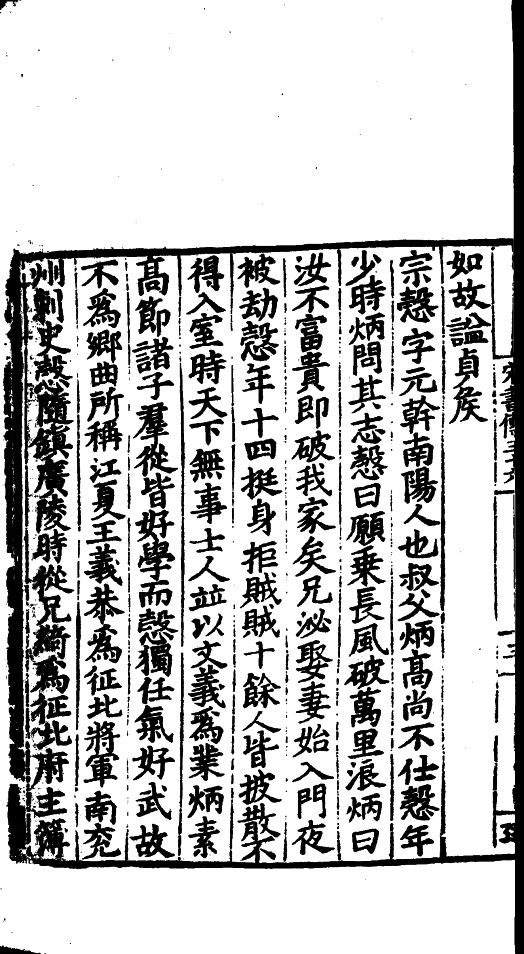 宋書傳三十六
如故謚貞矦
宗慤字元幹南陽人也叔父炳髙尚不仕慤年
少時炳問其志慤曰願乗長風破萬里浪炳曰
汝不富貴即破我家矣兄泌娶妻始入門夜
被劫慤年十四挺身拒賊賊十餘人皆披散不
得入室時天下無事士人並以文義爲業炳素
髙節諸子羣從皆好學而慤獨任氣好武故
不爲鄉曲所稱江夏王義恭爲征北將軍南兖
州刺史慤隨鎮廣陵時從兄綺爲征北府主簿